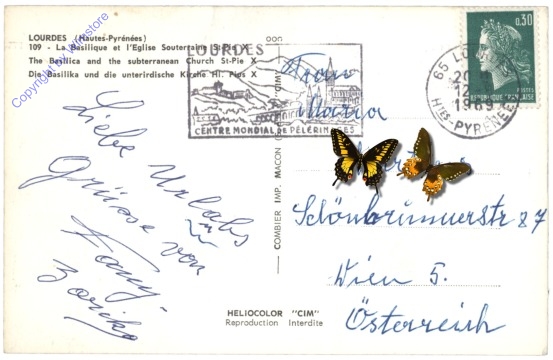 LOURDES (Hautes-Pyrénées)
109 - La Basilique et l'Eglise Souterraine St-Pie X
The Basilica and the subterranean Church St-Pie X
Die Basilika und die unterirdische Kirche Hl. Pius X
Copyright by
LOURDES
CENTRE MONDIAL DE PÈLERINAGES
0,30
POSTES
RÉPUBLIQUE FRANÇAISE
65 LOURDES
12
1969
HTES-PYRÉNÉES
Liebe Urlaubs
Grüsse von
Fanny
COMBIER IMP. MACON
Frau
Maria
Schönbrunnerstr 87
Wien 5.
Österreich
HELIOCOLOR "CIM"
Reproduction Interdite